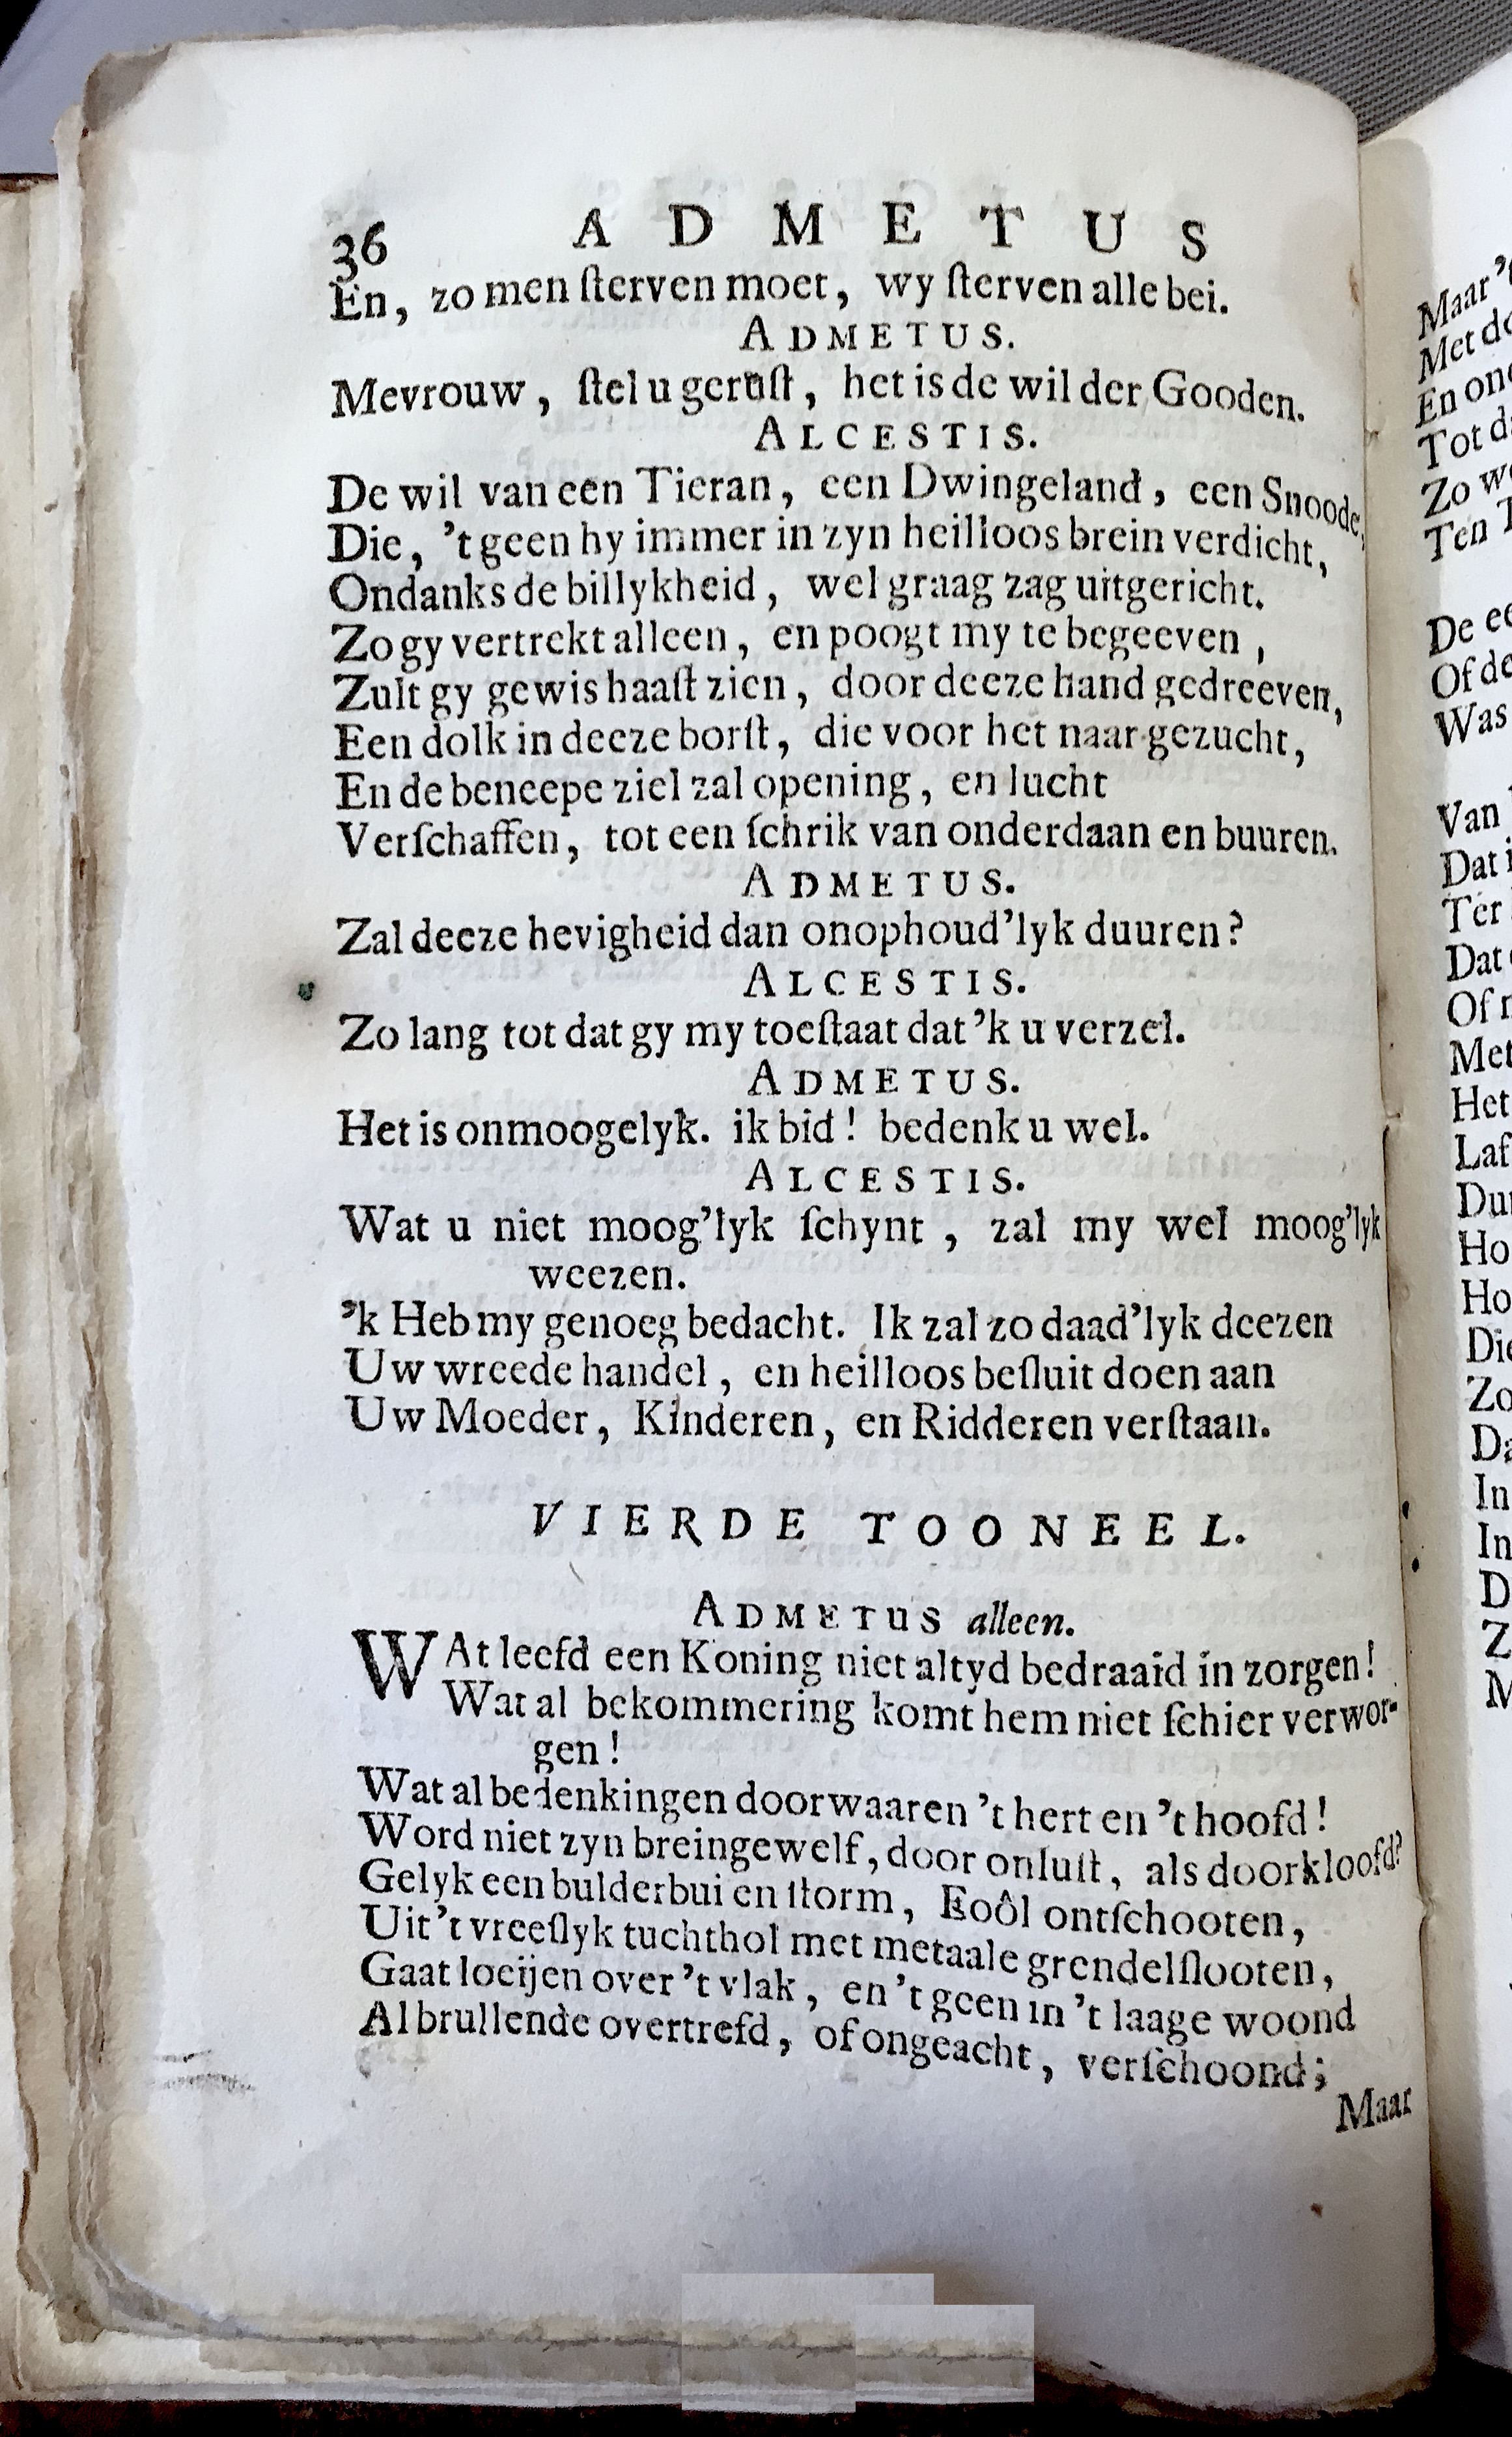 36 ADMETUS
En, zo men ſterven moet, wy ſterven alle bei.
ADMETUS.
Mevrouw, ſtel u geruſt, het is de wil der Gooden.
ALCESTIS.
De wil van een Tieran, een Dwingeland, een Snoode,
Die, 't geen hy immer in zyn heilloos brein verdicht,
Ondanks de billykheid, wel graag zag uitgericht.
Zo gy vertrekt alleen, en poogt my te begeeven,
Zult gy gewis haaſt zien, door deeze hand gedreeven,
Een dolk in deeze borſt, die voor het naar gezucht,
En de beneepe ziel zal opening, en lucht
Verſchaffen, tot een ſchrik van onderdaan en buuren.
ADMETUS.
Zal deeze hevigheid dan onophoud'lyk duuren?
ALCESTIS.
Zo lang tot dat gy my toeſtaat dat 'k u verzel.
ADMETUS.
Het is onmoogelyk. ik bid! bedenk u wel.
ALCESTIS.
Wat u niet moog'lyk ſchynt, zal my wel moog'lyk
weezen.
'k Heb my genoeg bedacht. Ik zal zo daad'lyk deezen
Uw wreede handel, en heilloos beſluit doen aan
Uw Moeder, Kinderen, en Ridderen verſtaan.
VIERDE TOONEEL.
ADMETUS alleen.
WAt leefd een Koning niet altyd bedraaid in zorgen!
Wat al bekommering komt hem niet ſchier verwor-
gen!
Wat al bedenkingen doorwaaren 't hert en 't hoofd!
Word niet zyn breingewelf, door onluſt, als doorkloofd?
Gelyk een bulderbui en ſtorm, Eoôl ontſchooten,
Uit 't vreeſlyk tuchthol met metaale grendelſlooten,
Gaat loeijen over 't vlak, en 't geen in 't laage woond
Al brullende overtrefd, of ongeacht, verſchoond;
Maar